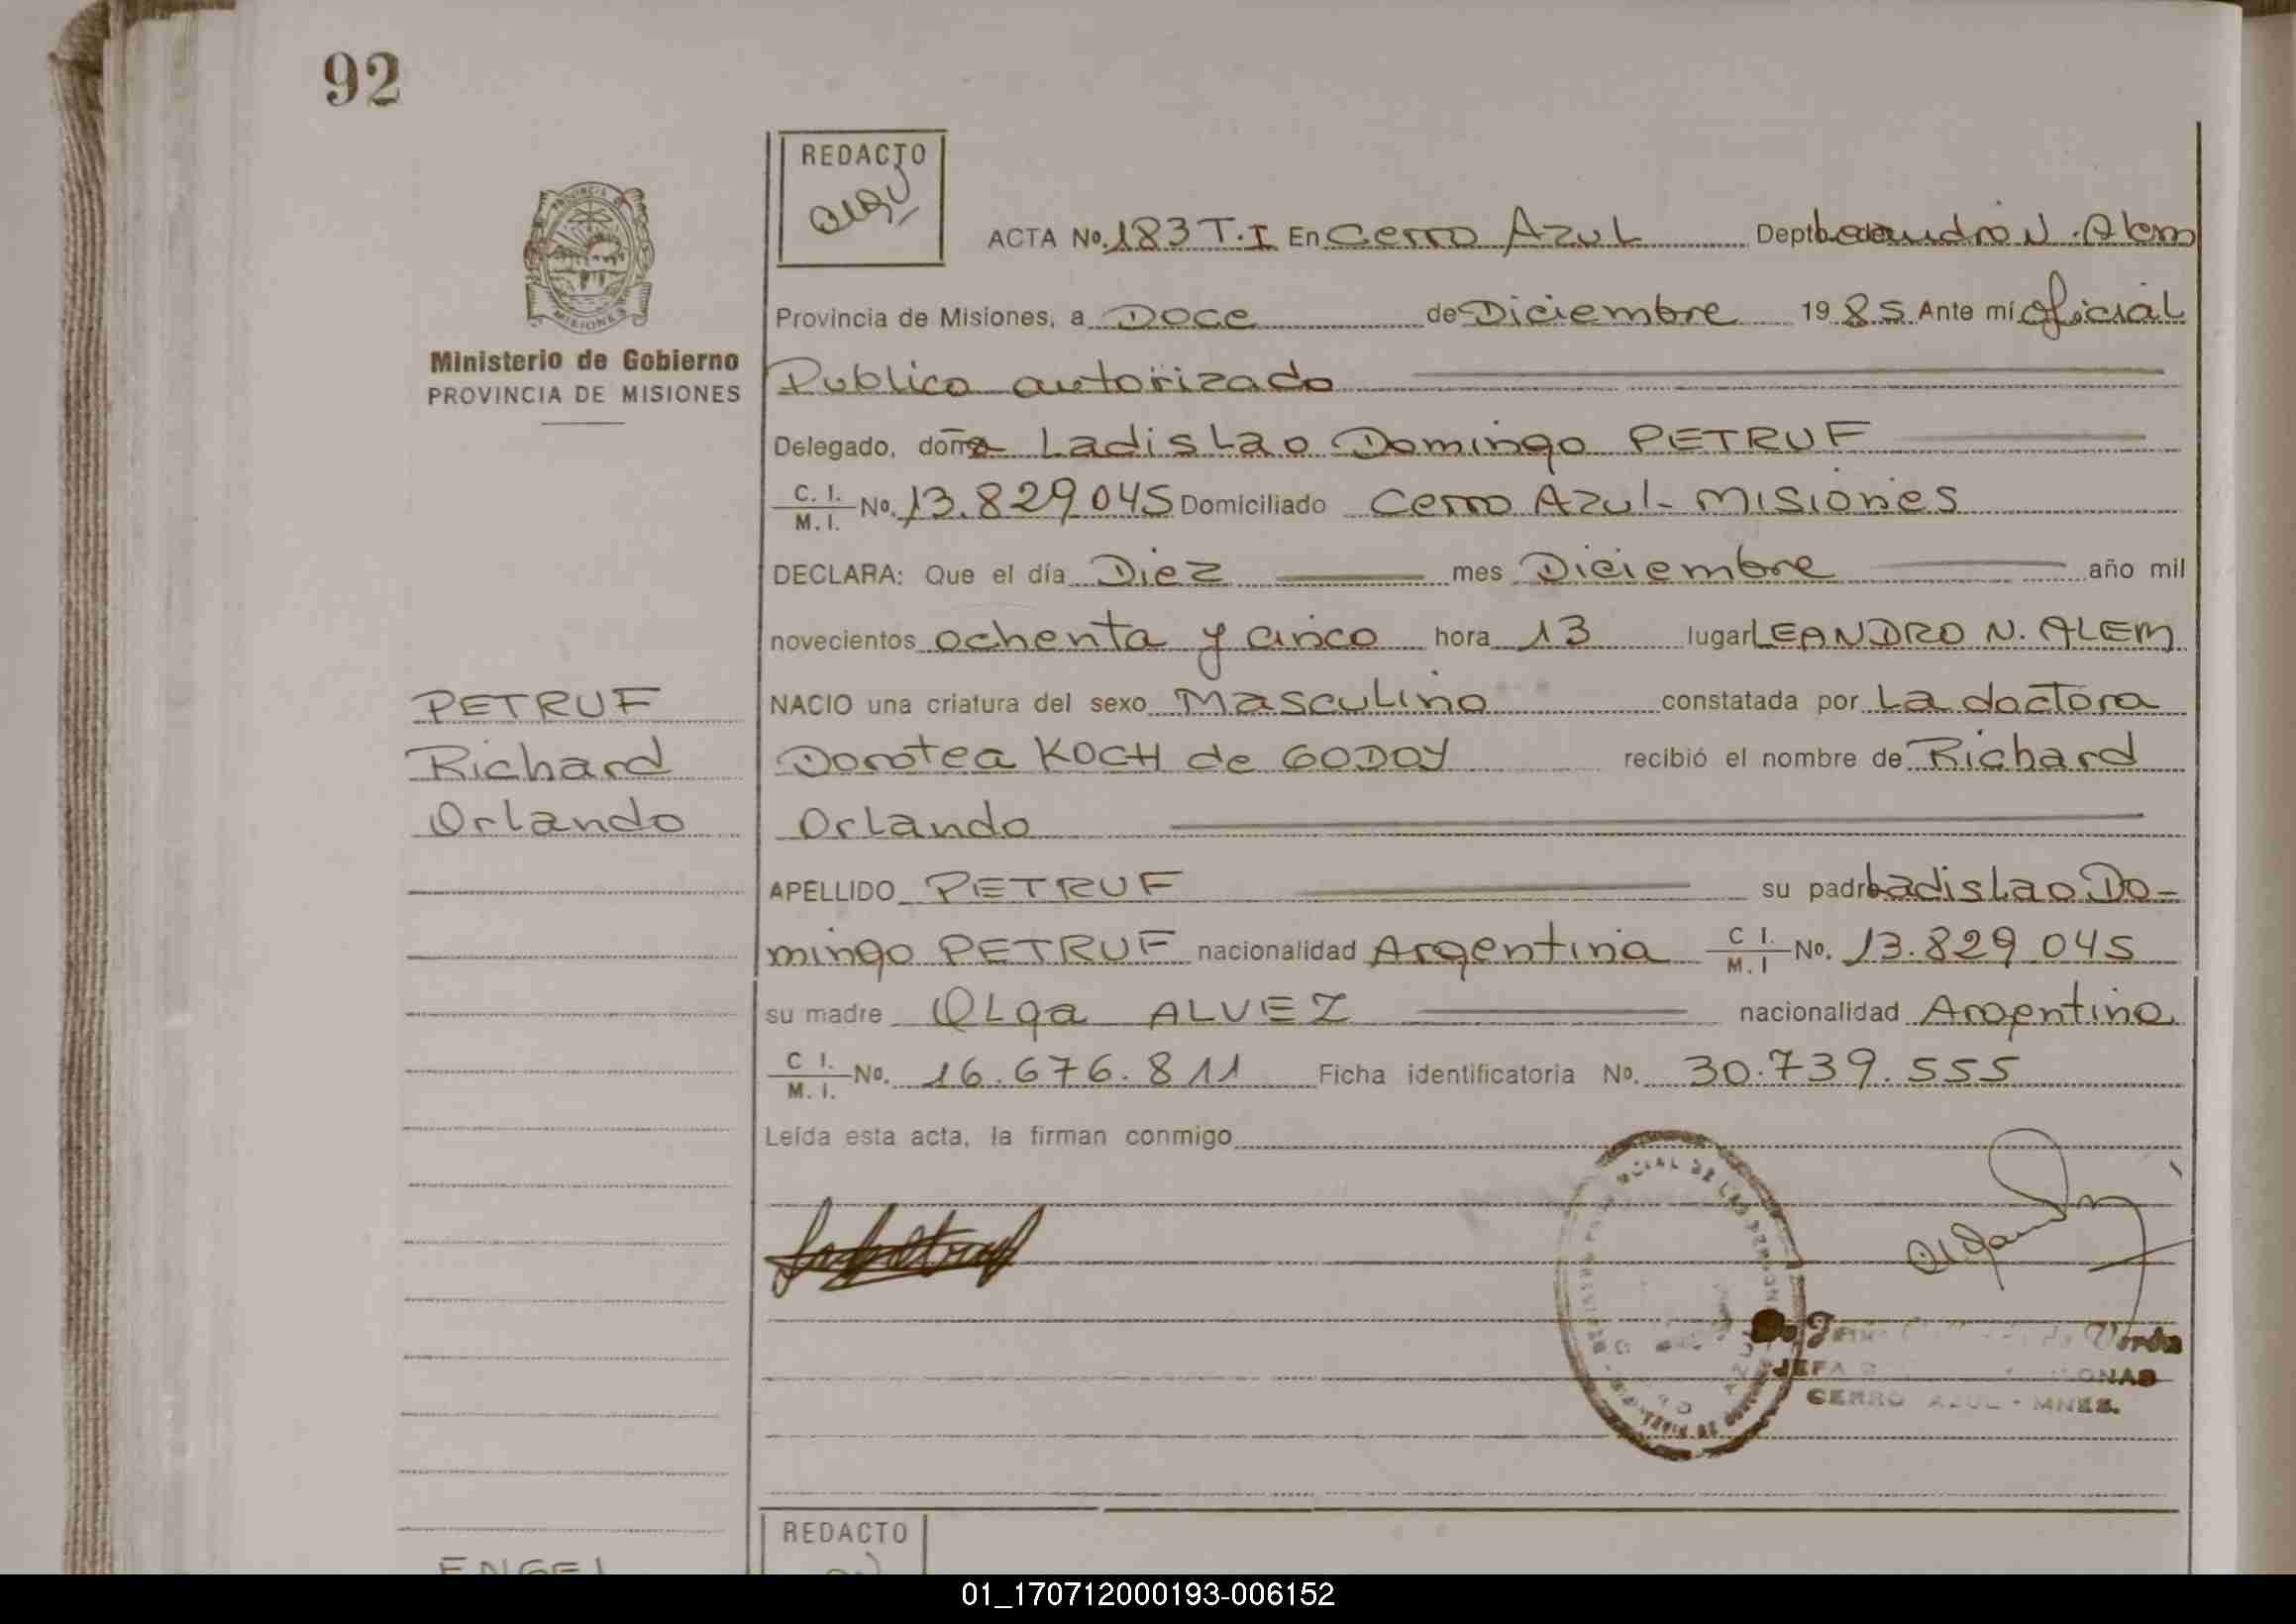 92
REDACTO
ACTA No. 183 T.I En Cerro Azul Depto. Leandro N. Alem
PROVINCIA
MISIONES
Provincia de Misiones, a Doce de Diciembre 1985 Ante mí Oficial
Ministerio de Gobierno
PROVINCIA DE MISIONES
Publico autorizado
Delegado, doña Ladislao Domingo PETRUF
C. I. M. I. No. 13.829.045 Domiciliado Cerro Azul - MISIONES
DECLARA: Que el día Diez mes Diciembre año mil
novecientos ochenta y cinco hora 13 lugar LEANDRO N. ALEM
PETRUF
NACIO una criatura del sexo Masculino constatada por La doctora
Richard
Dorotea KOCH de GODOY recibió el nombre de Richard
Orlando
Orlando
APELLIDO PETRUF su padre Ladislao Do-
mingo PETRUF nacionalidad Argentina C I. M. I No. 13.829.045
su madre Olga ALVEZ nacionalidad Argentina
C I. M. I. No. 16.676.811 Ficha identificatoria No. 30.739.555
Leída esta acta, la firman conmigo
JEFA
CERRO AZUL - MNES.
REDACTO
ENGEL
01_170712000193-006152